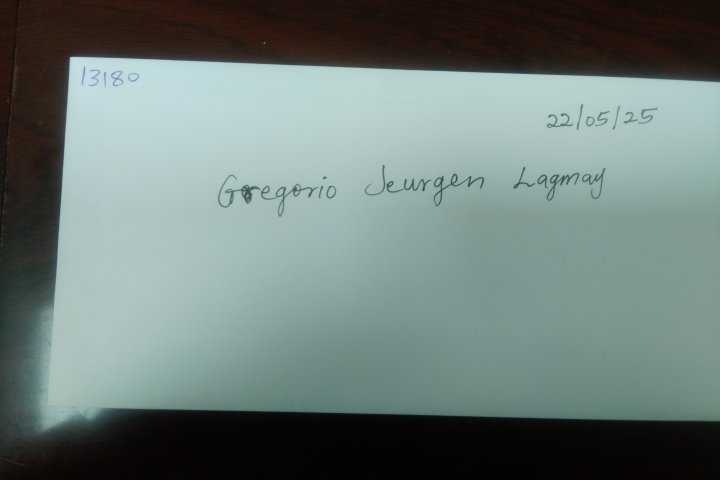 13180
22/05/25
Gregorio Jeurgen Lagmay